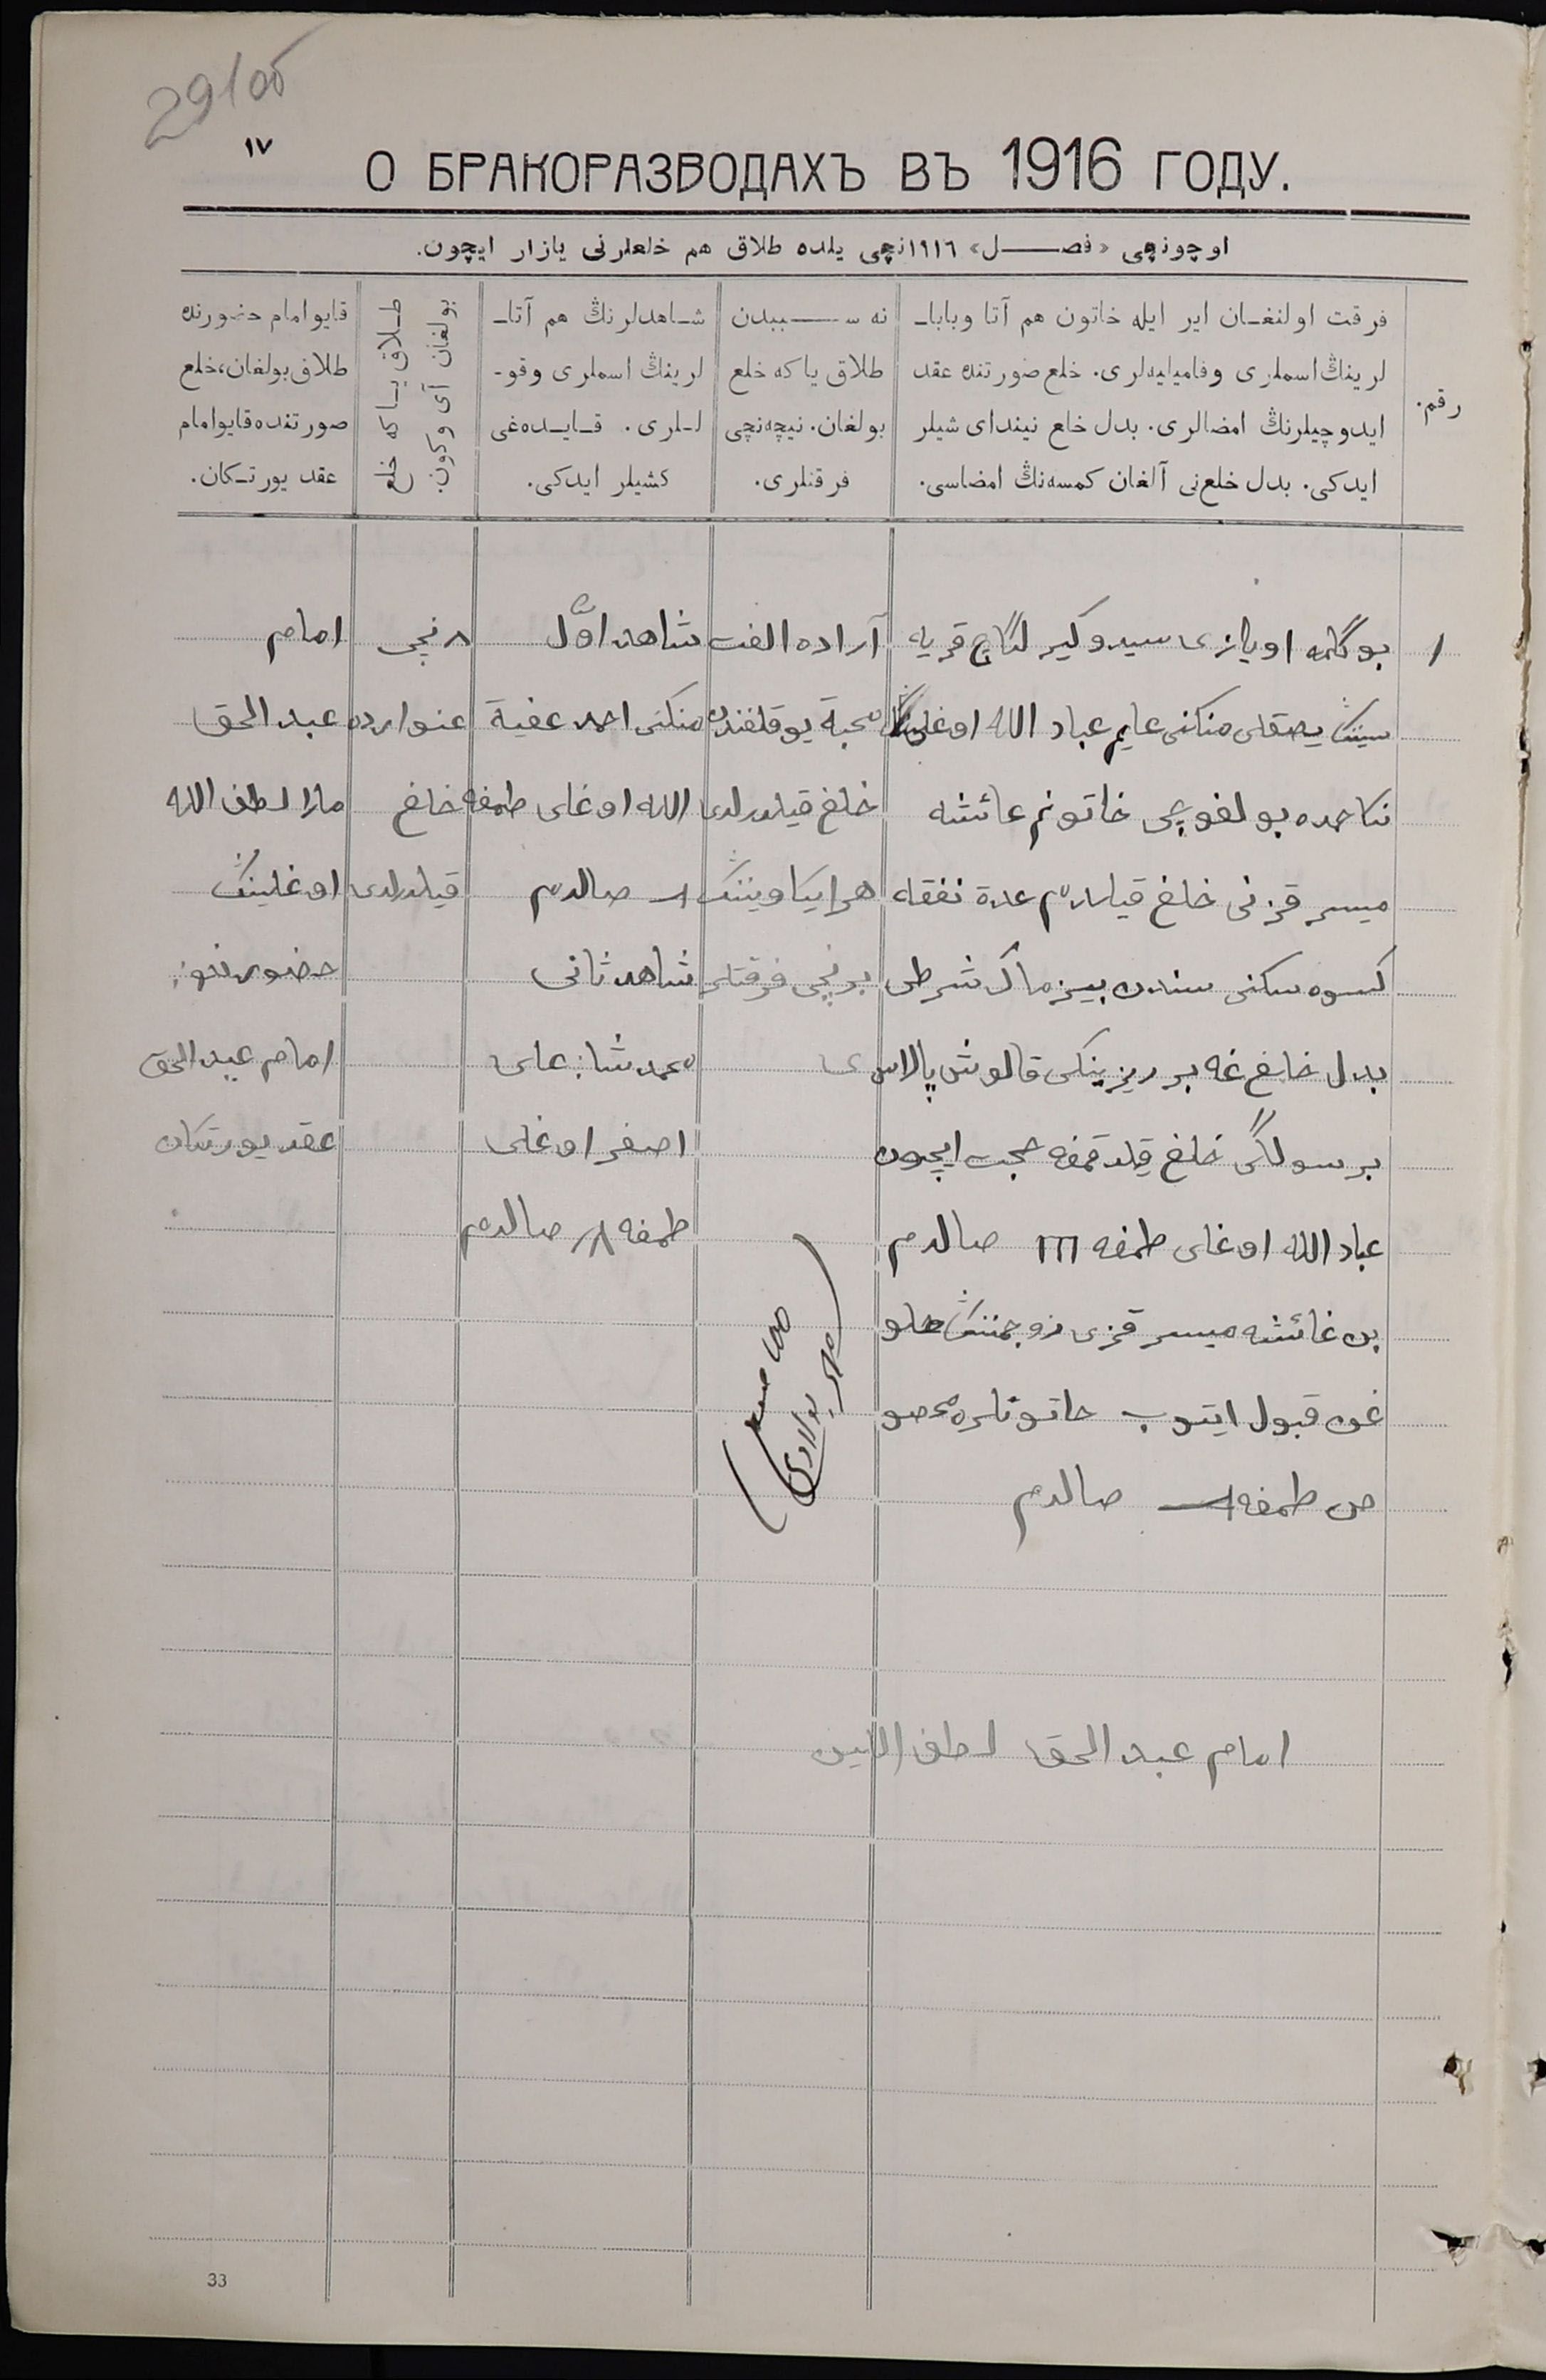 29 об
١٧
О БРАКОРАЗВОДАХЪ ВЪ 1916 ГОДУ.
اوچونچی «فصـــل» ١٩١٦نچی یلده طلاق هم خلعلرنی یازار ایچون.
رقم.
فرقت اولنغـان ایر ایله خاتون هم آتا وباباـ
لرینڭ اسملری وفامیلیه‌لری. خلع صورتنده عقد
ایدوچیلرنڭ امضالری. بدل خلع نیندای شیلر
ایدکی. بدل خلع‌نی آلغان کمسه‌نڭ امضاسی.
نه ســـببدن
طلاق یا که خلع
بولغان. نیچه‌نچی
فرقتلری.
شـاهدلرنڭ هم آتاـ
لرینڭ اسملری وقوـ
لـلری. قـایـده‌غی
کشیلر ایدکی.
طـلاق یـا که خلع
بولغان آی وکون.
قایو امام حضورنده
طلاق بولغان، خلع
صورتنده قایو امام
عقد یورتـکان.
١
بوگلمه اویازی سیدوکیر لگاچ قریه
سینڭ یصقلی منکنی عبا د الله اوغلی
نکاحمده بولغوچی خاتونم عائشه
میسر قزنی خلع قیلدم عدة نفقه
کسوه سکنی سندن بیزماک شرطی
بدل خلع غه بر ریزینکی قالوش پالاسی
بر سولگی خلع قیلدقمغه حجت ایچون
عباد الله اوغلی طمغه m صالدم
بن عائشه میسر قزی زوجمنڭ
غن قبول ایتوب
طمغه صالدم
آراده الفت
محبة یوقلغندن
خلع قیلدرلدی
هر ایکاویننڭ
برنچی فرقتلر
شاهد اوّل
منکنی احمد
الله اوغلی طمغه
صالدم
شاهد ثانی
محمدشا علی
اصغر اوغلی
طمغه صالدم
٨ نچی
غنواردە
خلع
قیلدرلدی
امام
عبد الحق
ملا لطف الله
اوغلینڭ
حضورنده
امام عبد الحق
عقد یورتکان
امام عبد الحق لطف اللهین
33